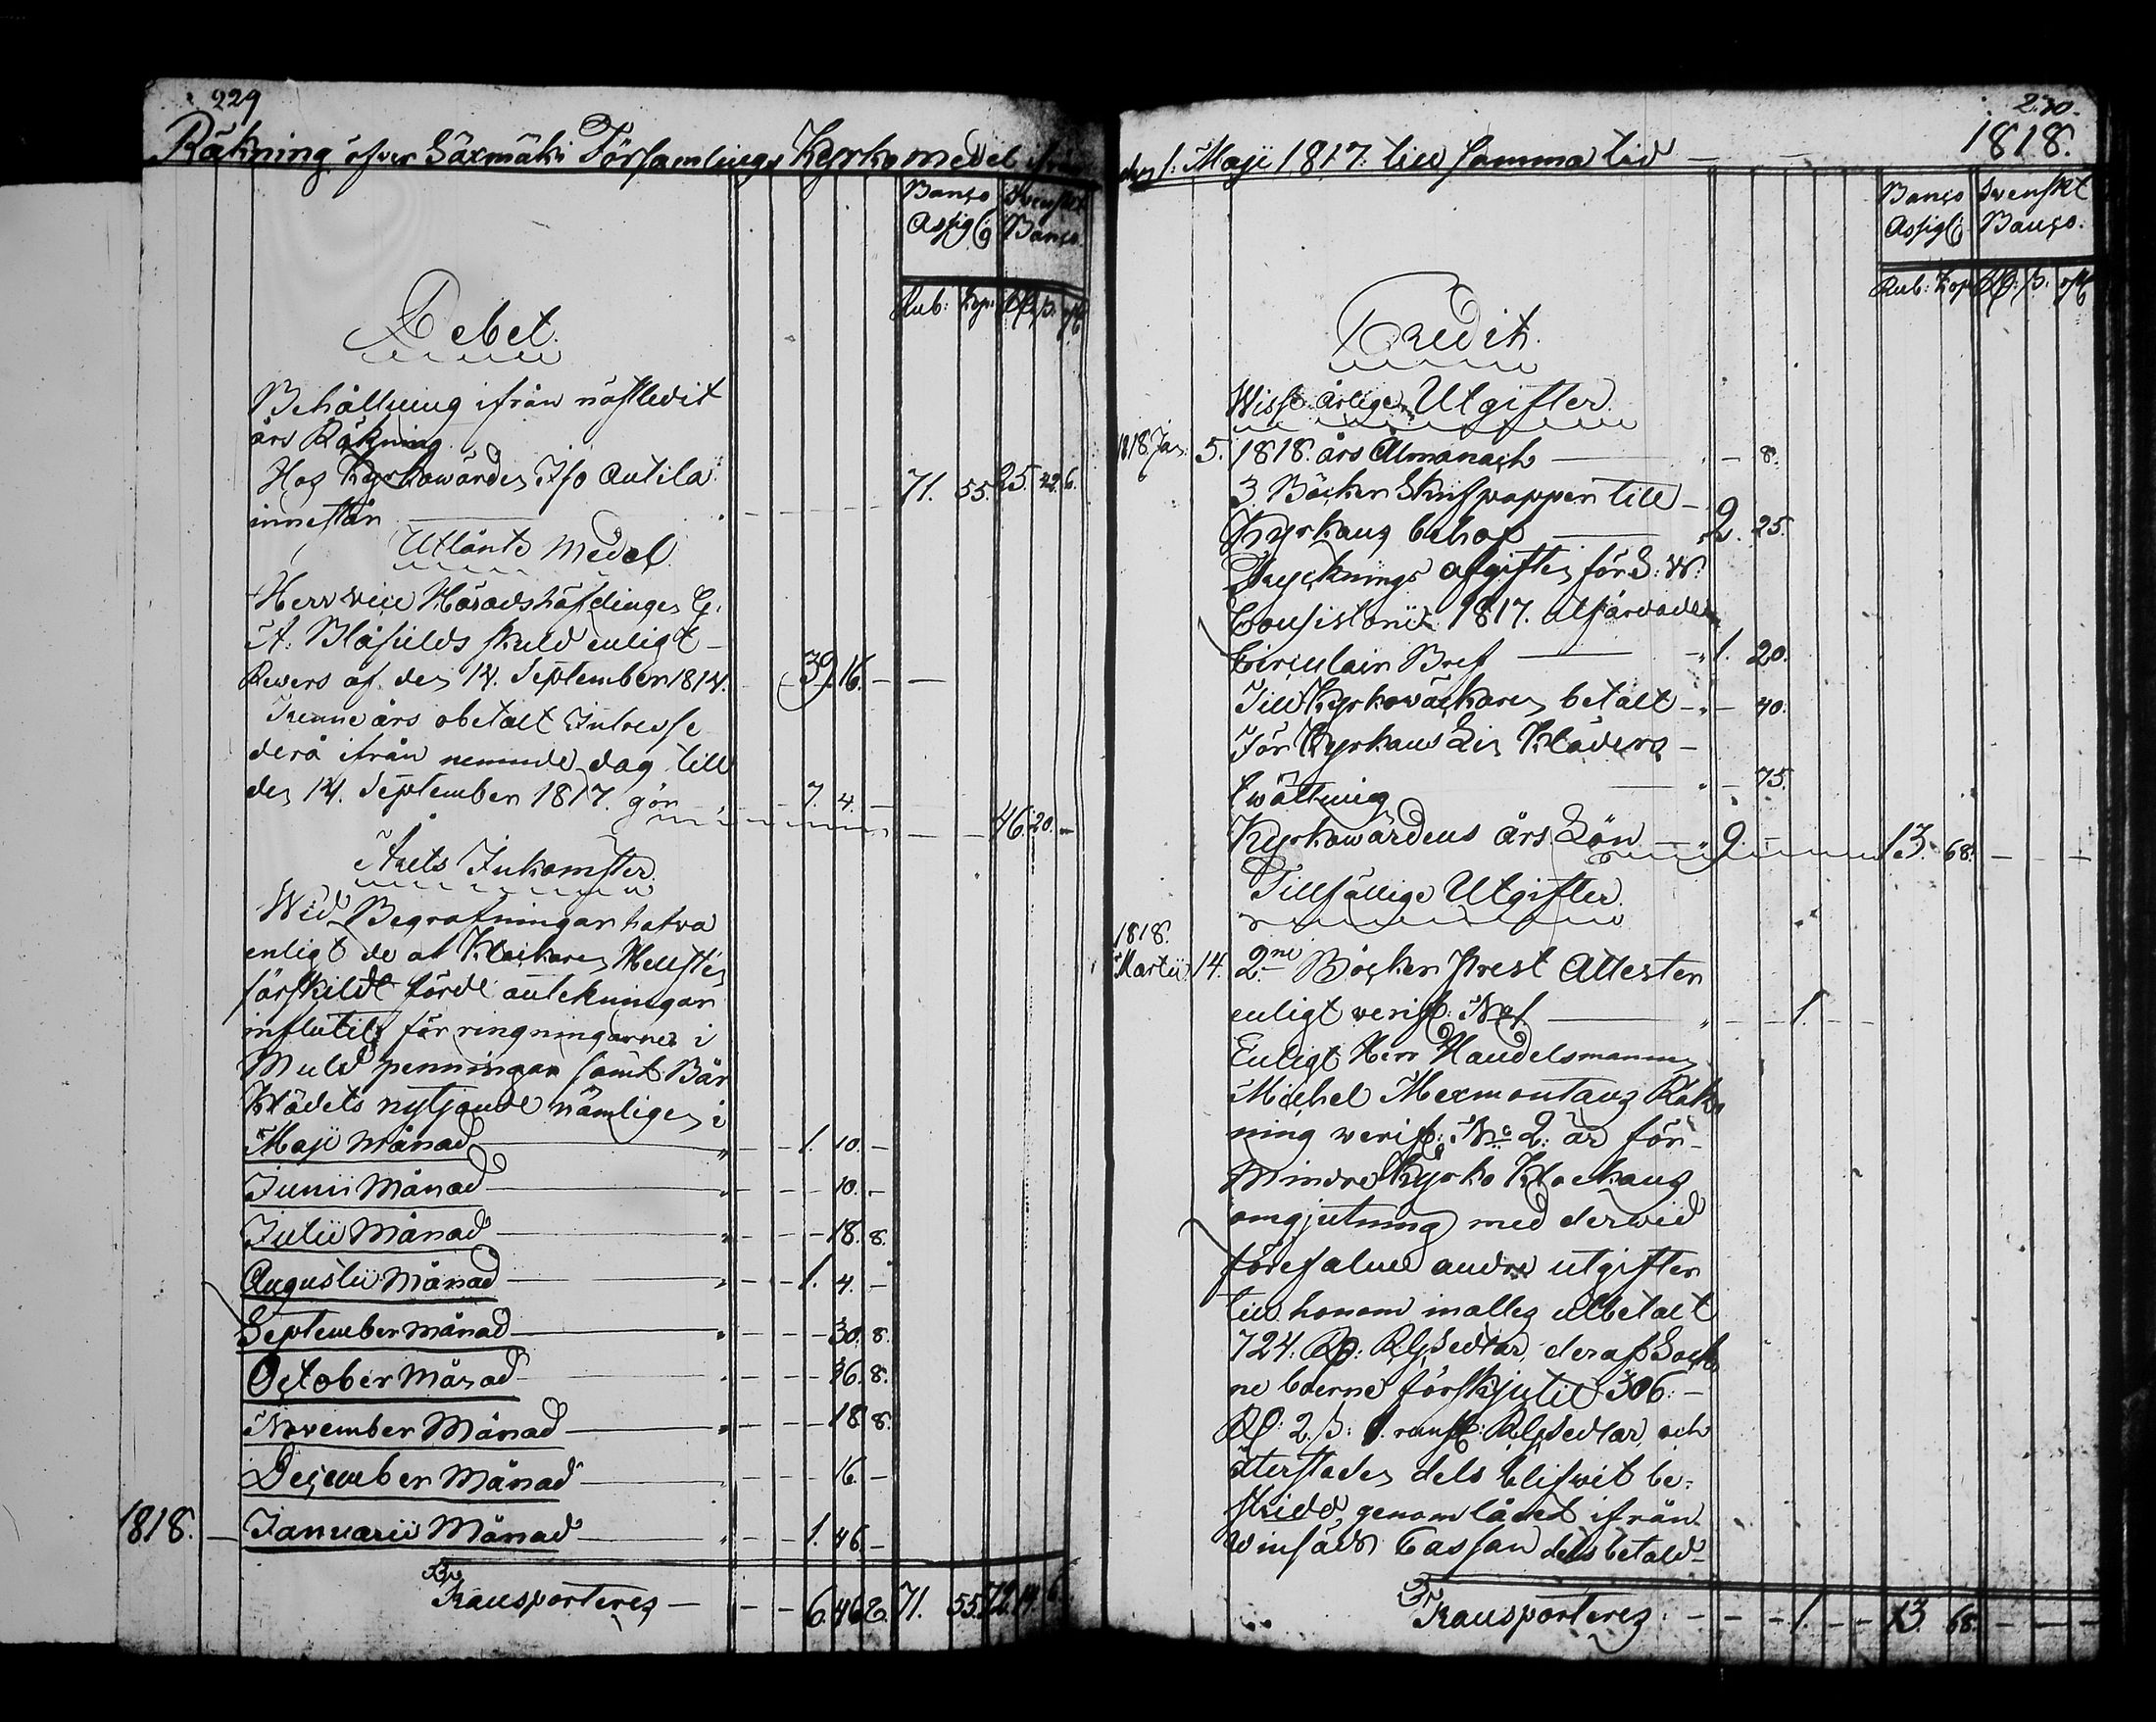 229
Räkning öfver Säxmäki Församlings Kyrko medel ifrån
Banco Assig: Swenskt Banco
Rub: Kop:
Debet.
Behållning ifrån nästledit
års Räkning
Hos Kyrkowärden Iso Antila
innestår 71. 55. 25. 42. 6.
Utlänte Medel
Herr Vice Häradshöfdingen G.
A. Blåfields skuld enligt
Revers af den 14. September 1814. 39. 16. –
Trenne års obetalt Intresse
derå ifrån nemnde dag till
den 14. September 1817. gör 7. 4. – 46. 20. –
Årets Inkomster
Wid Begrafningar hafva
enligt de af Klockaren Hellsten
särskildt förde anteckningar
influtit för ringningarne i
Muld penningar samt Bår
Klädets nytjande nämligen i
Maji Månad 1. 10. –
Junii Månad 10. –
Julii Månad 18. 8.
Augustii Månad 1. 4. –
September Månad 30. 8.
October Månad 36. 8.
November Månad 18. 8.
December Månad 16. –
1818. – Januarii Månad 1. 46. –
Transporteres – 6. 46. 8. 71. 55. 72. 14. 6.
230.
den 1. Maji 1817. till samma tid – 1818.
Banco Assig: Swenskt Banco.
Rub: Kop:
Credit.
Wisse årlige Utgifter.
1818 Jan: 5. 1818. års Almanach – 8.
3 Böcker Skrifpapper till
Kyrkans behof 2. 25.
Trycknings afgiften för S: W:
Consistorii 1817. utfärdade
Circulair Bref 1. 20.
Till Kyrkowäckaren betalt – 40.
För Kyrkans Lin Kläders
twättning 75.
Kyrkowärdens års Lön 9. – 13. 68. – – –
Tillfällige Utgifter.
1818.
Martii 14. 2ne Böcker Prest Attester
enligt verif: No 1 1. –
Enligt Herr Handelsmannen
Michel Mexmontans Räk
ning verif: No 2: är för
Mindre Kyrko Klockans
omgjutning med derwid
förefalne andre utgifter
till honom inalles utbetalt
724: RD: RGsedlar, deraf Sock
ne boerne förskjutit 306: –
RD: 2. s: 8. runst: RGsedlar, och
återstoden dels blifwit be-
stridd genom lånet ifrån
Winsäds Cassan dels betald
Transporteres – – – 1. – – 13. 68. – – –